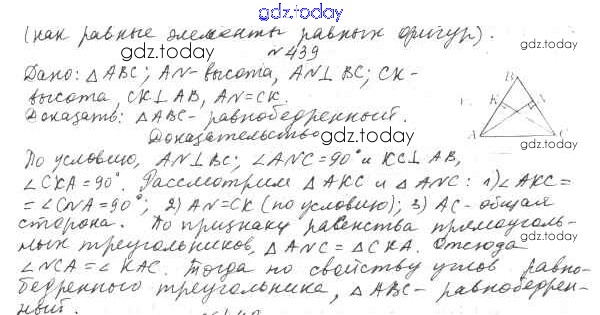 gdz.today
(как равные элементы равных фигур).
gdz.today
gdz.today
№439
Дано: △ABC; AN-высота, AN⊥BC; CK-
высота, CK⊥AB, AN=CK.
gdz.today
Доказать: △ABC- равнобедренный.
B
K N
A C
Доказательство
gdz.today
По условию, AN⊥BC; ∠ANC=90° и KC⊥AB,
∠CKA=90°. Рассмотрим △AKC и △ANC: 1)∠AKC=
=∠CNA=90°; 2) AN=CK (по условию); 3) AC- общая
сторона. По признаку равенства прямоуголь-
gdz.today
ных треугольников, △ANC=△CKA. Отсюда
gdz.today
∠NCA=∠KAC. Тогда по свойству углов равно-
бедренного треугольника, △ABC- равнобедрен-
ный.